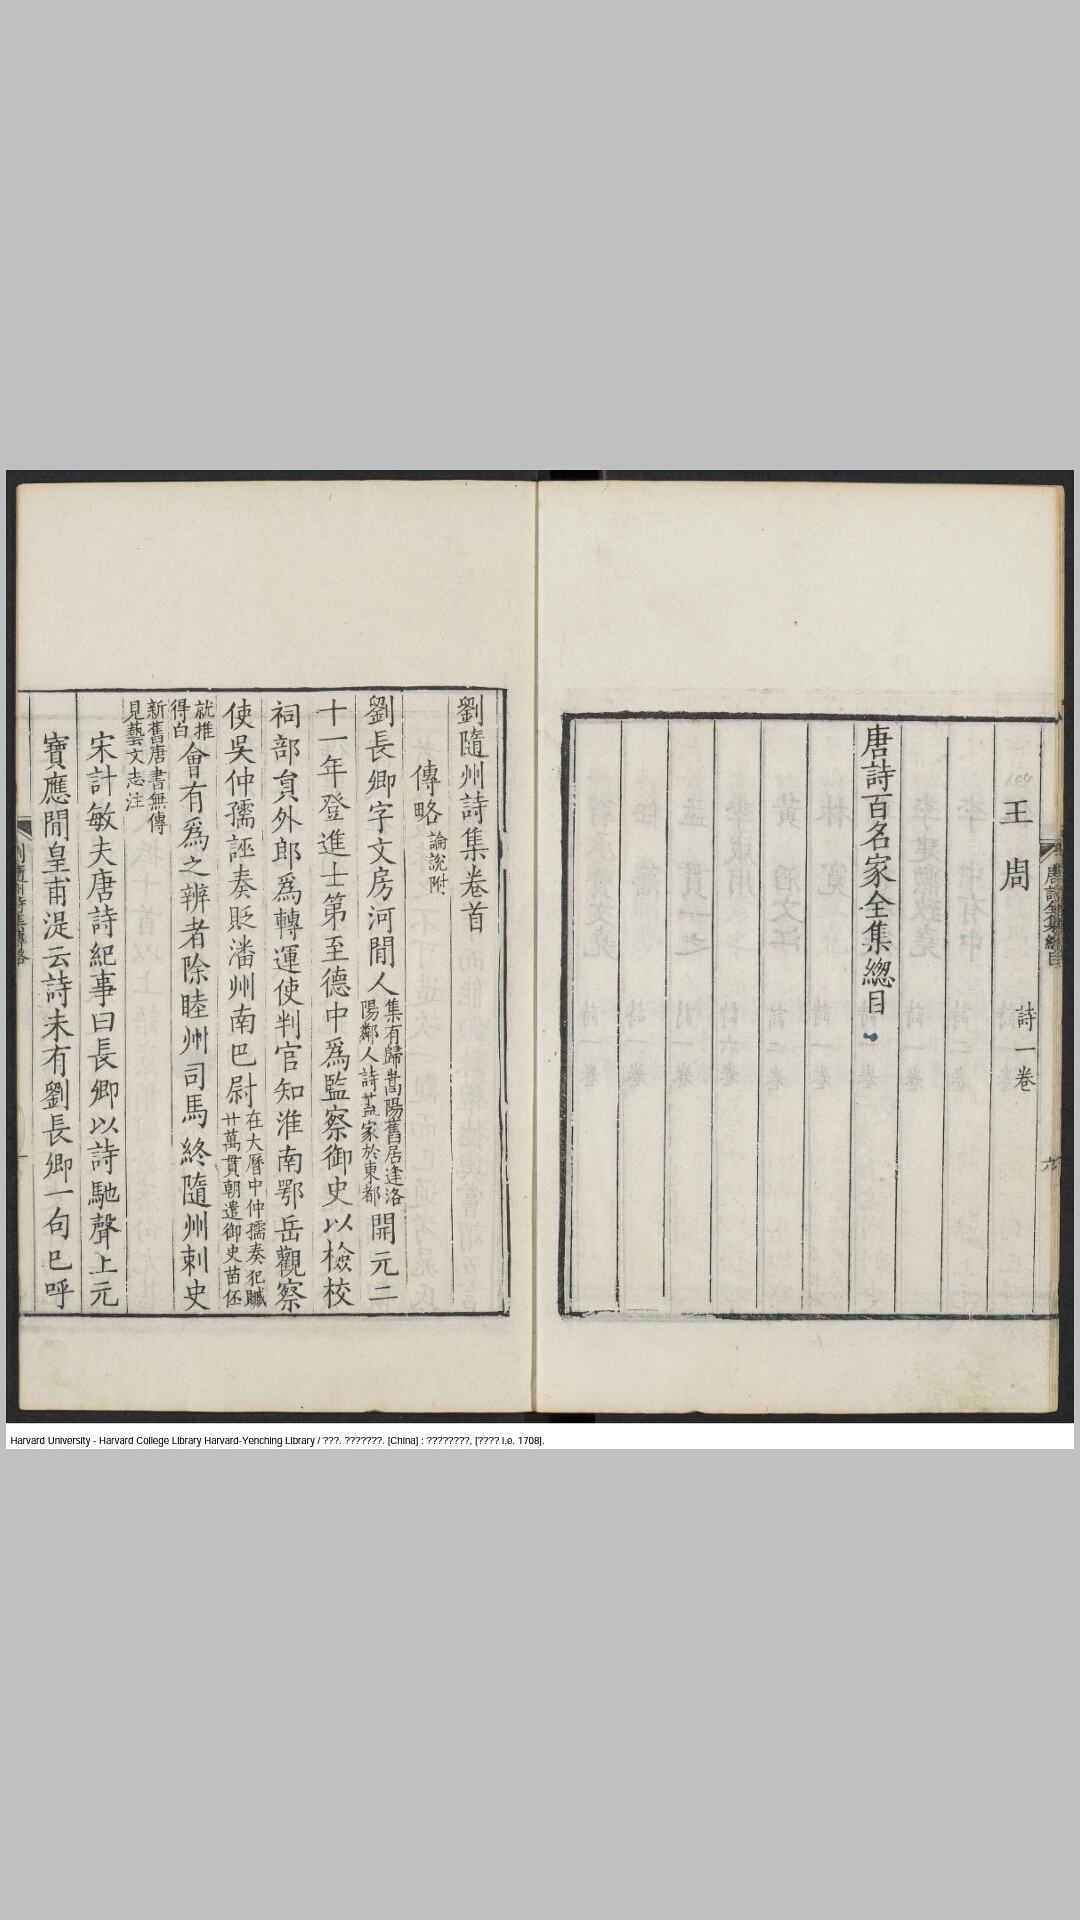 唐詩全集總目
六
王周 詩一卷
唐詩百名家全集總目
劉隨州詩集卷首
傳略 論說附
劉長卿字文房河間人集有歸嵩陽舊居逢洛
陽鄰人詩蓋家於東都開元二
十一年登進士第至德中為監察御史以檢校
祠部貟外郎為轉運使判官知淮南鄂岳觀察
使吳仲孺誣奏貶潘州南巴尉在大曆中仲孺奏犯贓
廿萬貫朝遣御史苗伾
就推
得白會有為之辨者除睦州司馬終隨州刺史
新舊唐書無傳
見藝文志注
宋計敏夫唐詩紀事曰長卿以詩馳聲上元
寶應間皇甫湜云詩未有劉長卿一句已呼
Harvard University - Harvard College Library Harvard-Yenching Library / ???. ???????. [China] : ????????, [???? i.e. 1708].